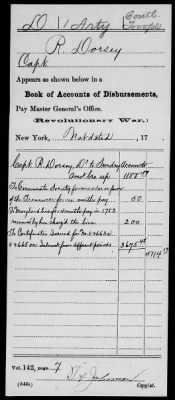 D | Arty | Contl. Troops
R. Dorsey
Capt
Appears as shown below in a
Book of Accounts of Disbursements,
Pay Master General's Office.
(Revolutionary War.)
New York, Not dated, 17 .
Capt. R. Dorsey Dr. To Sundry Accounts
amt bro up 1188
To Cincinnati Society for in
of the Treasurer for one months pay 50
To Maryland line for months pay in 1783
received by him chargd the line 200
To Certificates Issued for
on Interest from different periods 3675
5114
Vol. 142, page 7
Copyist.